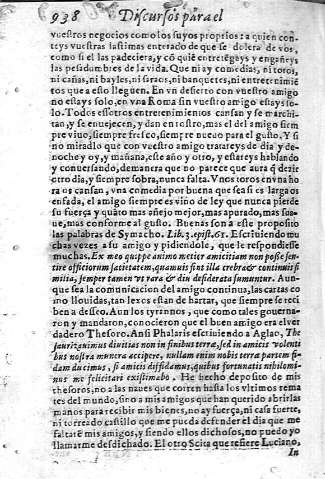 938 Discursos para el
vuestros negocios como los suyos proprios: a quien con-
teys vuestras lastimas enterado de que se dolera de vos,
como si el las padeciera, y cõ quiē entretēgays y engañeys
las pesadumbres de la vida. Que ni ay comedias, ni toros,
ni cañas, ni bayles, ni saraos, ni banquetes, ni entretenimiē
tos que a esso lleguen. En vn desierto con vuestro amigo
no estays solo, en vna Roma sin vuestro amigo estays so-
lo. Todos essotros entretenimientos cansan y se marchi-
tan, y se enuejecen, y dan en rostro, mas el del amigo siem
pre viuo, siempre fresco, siempre nueuo para el gusto. Y si
no miradlo que con vuestro amigo tratareys de dia y de-
noche y oy, y mañana, este año y otro, y estareys hablando
y conuersando, de manera que no parece que aura q̃ dezir
otro dia, y siempre sobra, nunca falta. Vnos toros en vna ho
ra os cansan, vna comedia por buena que sea si es larga os
enfada, el amigo siempre es vino de ley que nunca pierde
su fuerça y quãto mas añejo mejor, mas apurado, mas sua-
ue, mas conforme al gusto. Buenas son a este proposito
las palabras de Symacho. Lib. 3. epist. 65. Escriuiendo mu
chas vezes a su amigo y pidiendole, que le respondiesse
muchas. Ex meo quippe animo metior amicitiam non posse sen-
tire officiorum satietatem, quamuis sint illa crebra & continuis si
milia, semper tamen vt rara & diu desiderata sumuntur. Aun-
que sea la comunicacion del amigo continua, las cartas co
mo llouidas, tan lexos estan de hartar, que siempre se reci
ben a desseo. Aun los tyrannos, que como tales gouerna-
ron y mandaron, conocieron que el buen amigo era el ver
dadero Thesoro. Ansi Phalaris escriuiendo a Aglao, The
saurizanimus diuitias non in finibus terræ, sed in amicis volenti
bus nostra munera accipere, nullam enim nobis terra partem fi-
dam ducimus, si amicis diffidamus, quibus fortunatis nihilomi-
nus me felicitari existimabo. He hecho deposito de mis
thesoros, no a las naues que corren hasta los vltimos rema
tes del mundo, sino a mis amigos que han querido abrirlas
manos para recibir mis bienes, no ay fuerça, ni casa fuerte,
ni torreado castillo que me pueda defender el dia que me
faltarē mis amigos, y siendo ellos dichosos, no puedo yo
llamarme desdichado. El otro Scita que refiere Luciano,
In